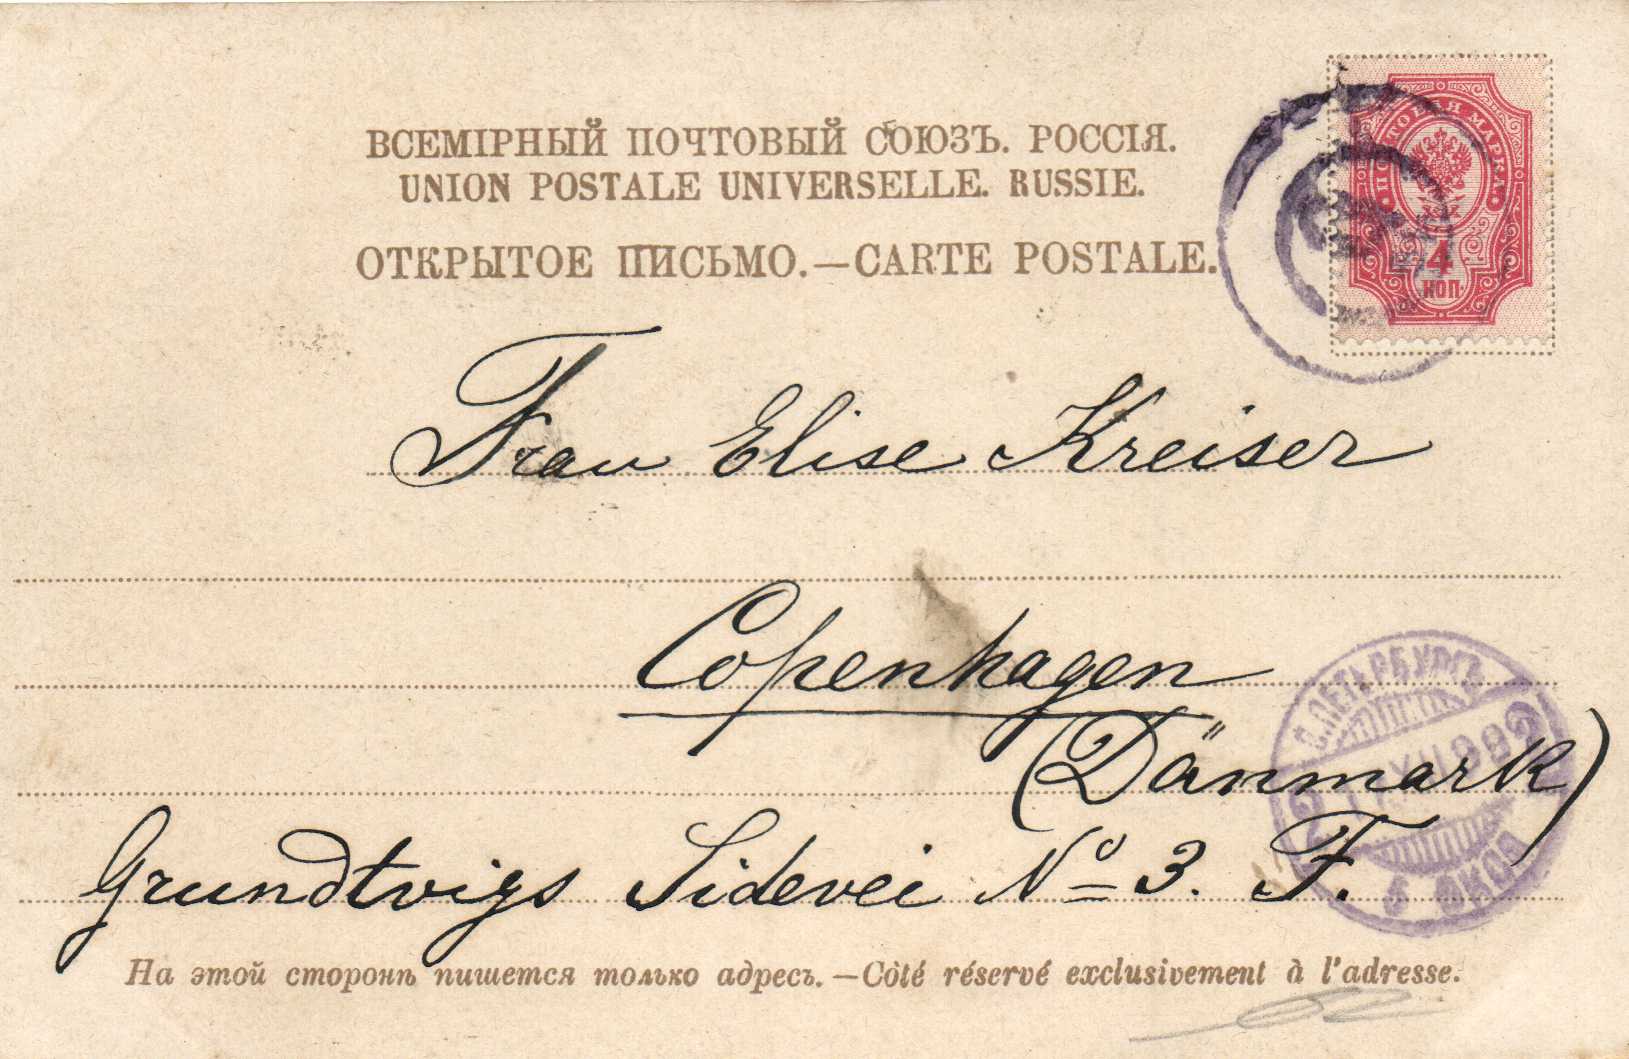 ВСЕМІРНЫЙ ПОЧТОВЫЙ СОЮЗЪ. РОССІЯ.
UNION POSTALE UNIVERSELLE. RUSSIE.
ОТКРЫТОЕ ПИСЬМО.—CARTE POSTALE.
ПОЧТОВАЯ МАРКА
4
КОП.
Frau Elise Kreiser
Copenhagen
(Dänmark)
Grundtvigs Sidevei No 3. F.
С.ПЕТЕРБУРГЪ
2 2
5 ЭКСП
На этой сторонѣ пишется только адресъ.—Côté réservé exclusivement à l'adresse.